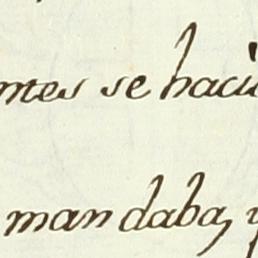 ntes se haci
mandaba, y